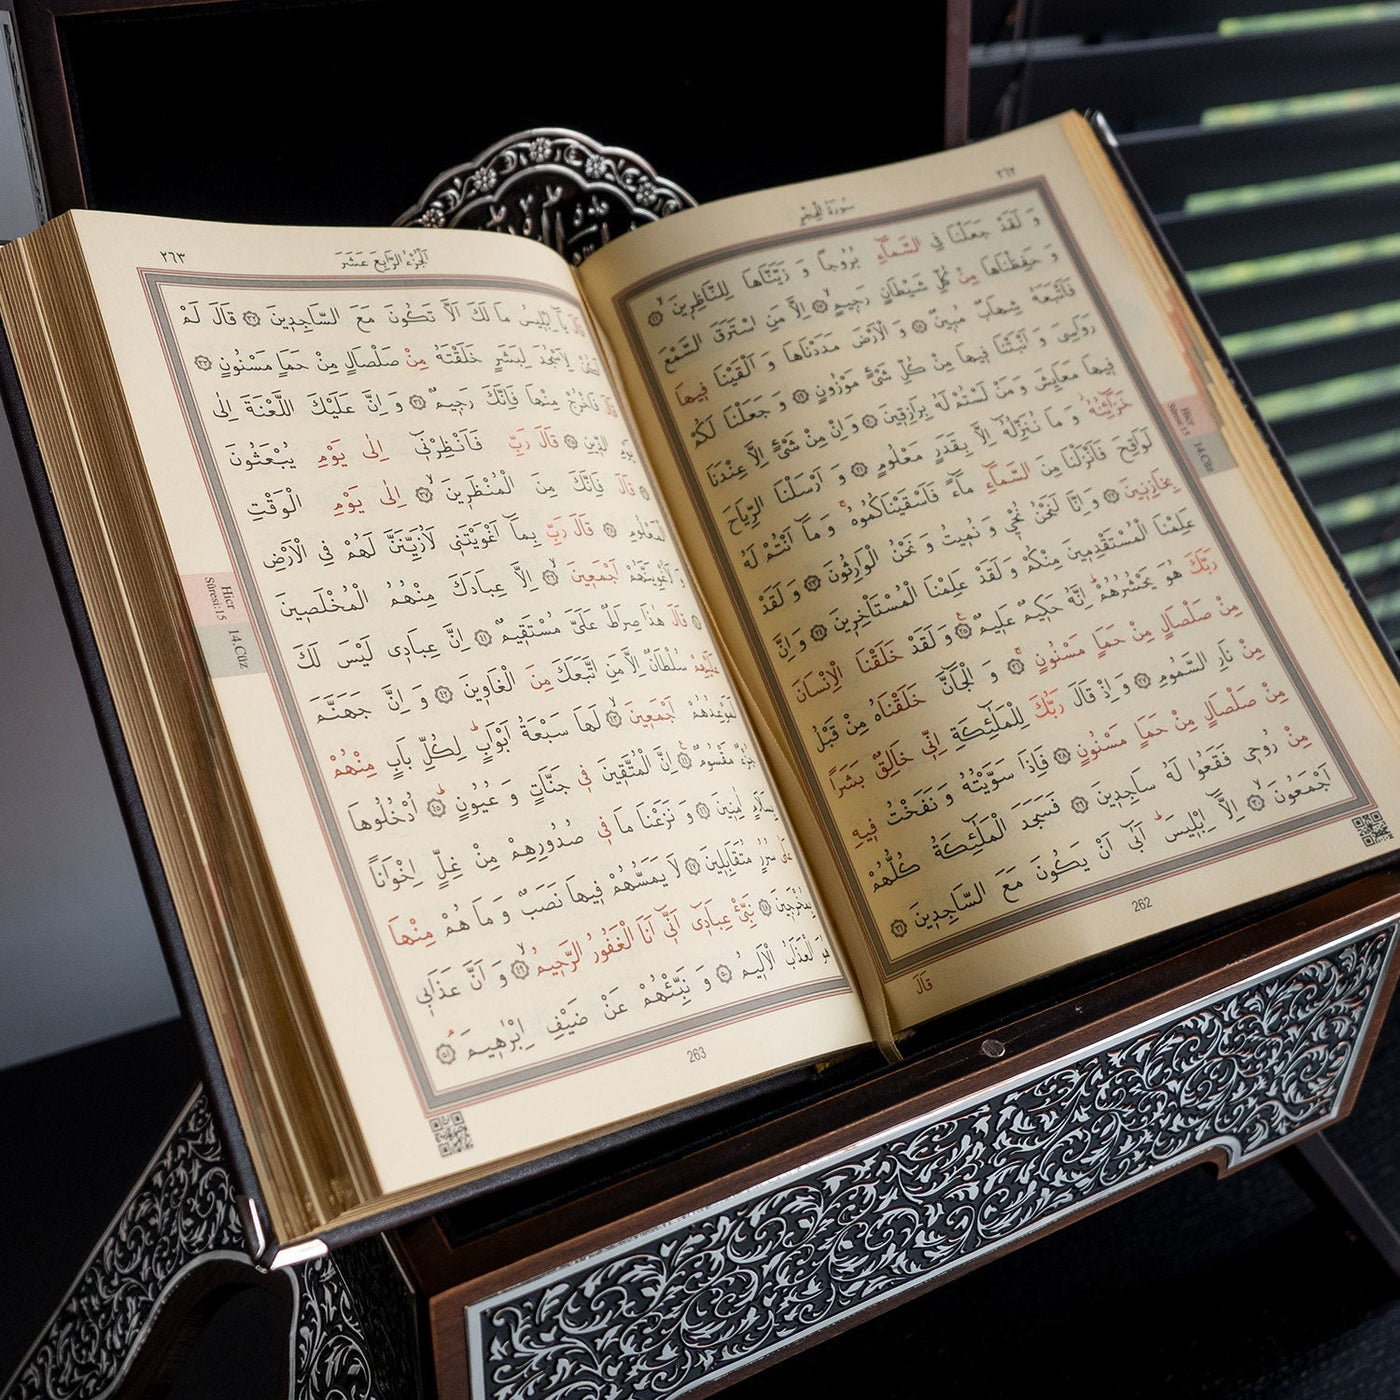 ٢٦٢
سُورَةُ الْحِجْرِ
وَ لَقَدْ جَعَلْنَا فِي السَّمَٓاءِ بُرُوجًا وَ زَيَّنَّاهَا لِلنَّاظِرِينَ ١٦
وَ حَفِظْنَاهَا مِنْ كُلِّ شَيْطَانٍ رَجِيمٍ ١٧ اِلَّا مَنِ اسْتَرَقَ السَّمْعَ
فَاَتْبَعَهُ شِهَابٌ مُبِينٌ ١٨ وَ الْاَرْضَ مَدَدْنَاهَا وَ اَلْقَيْنَا فِيهَا
رَوَاسِيَ وَ اَنْبَتْنَا فِيهَا مِنْ كُلِّ شَيْءٍ مَوْزُونٍ ١٩ وَ جَعَلْنَا لَكُمْ
فِيهَا مَعَايِشَ وَ مَنْ لَسْتُمْ لَهُ بِرَازِقِينَ ٢٠ وَ اِنْ مِنْ شَيْءٍ اِلَّا عِنْدَنَا
خَزَٓائِنُهُ وَ مَا نُنَزِّلُهُٓ اِلَّا بِقَدَرٍ مَعْلُومٍ ٢١ وَ اَرْسَلْنَا الرِّيَاحَ
لَوَاقِحَ فَاَنْزَلْنَا مِنَ السَّمَٓاءِ مَٓاءً فَاَسْقَيْنَاكُمُوهُ وَ مَٓا اَنْتُمْ لَهُ
بِخَازِنِينَ ٢٢ وَ اِنَّا لَنَحْنُ نُحْيِي وَ نُمِيتُ وَ نَحْنُ الْوَارِثُونَ ٢٣ وَ لَقَدْ
عَلِمْنَا الْمُسْتَقْدِمِينَ مِنْكُمْ وَ لَقَدْ عَلِمْنَا الْمُسْتَاْخِرِينَ ٢٤ وَ اِنَّ
رَبَّكَ هُوَ يَحْشُرُهُمْ اِنَّهُ حَكِيمٌ عَلِيمٌ ٢٥ وَ لَقَدْ خَلَقْنَا الْاِنْسَانَ
مِنْ صَلْصَالٍ مِنْ حَمَاٍ مَسْنُونٍ ٢٦ وَ الْجَٓانَّ خَلَقْنَاهُ مِنْ قَبْلُ
مِنْ نَارِ السَّمُومِ ٢٧ وَ اِذْ قَالَ رَبُّكَ لِلْمَلٰٓئِكَةِ اِنِّي خَالِقٌ بَشَرًا
مِنْ صَلْصَالٍ مِنْ حَمَاٍ مَسْنُونٍ ٢٨ فَاِذَا سَوَّيْتُهُ وَ نَفَخْتُ فِيهِ
مِنْ رُوحِي فَقَعُوا لَهُ سَاجِدِينَ ٢٩ فَسَجَدَ الْمَلٰٓئِكَةُ كُلُّهُمْ
اَجْمَعُونَ ٣٠ اِلَّٓا اِبْلِيسَ اَبٰٓى اَنْ يَكُونَ مَعَ السَّاجِدِينَ ٣١
قَالَ
262
Hicr
Sûresi:15
14.Cüz
٢٦٣
اَلْجُزْءُ الرَّابِعَ عَشَرَ
قَالَ يَٓا اِبْلِيسُ مَا لَكَ اَلَّا تَكُونَ مَعَ السَّاجِدِينَ ٣٢ قَالَ لَمْ
اَكُنْ لِاَسْجُدَ لِبَشَرٍ خَلَقْتَهُ مِنْ صَلْصَالٍ مِنْ حَمَاٍ مَسْنُونٍ ٣٣
قَالَ فَاخْرُجْ مِنْهَا فَاِنَّكَ رَجِيمٌ ٣٤ وَ اِنَّ عَلَيْكَ اللَّعْنَةَ اِلٰى
يَوْمِ الدِّينِ ٣٥ قَالَ رَبِّ فَاَنْظِرْنِي اِلٰى يَوْمِ يُبْعَثُونَ
٣٦ قَالَ فَاِنَّكَ مِنَ الْمُنْظَرِينَ ٣٧ اِلٰى يَوْمِ الْوَقْتِ
الْمَعْلُومِ ٣٨ قَالَ رَبِّ بِمَٓا اَغْوَيْتَنِي لَاُزَيِّنَنَّ لَهُمْ فِي الْاَرْضِ
وَ لَاُغْوِيَنَّهُمْ اَجْمَعِينَ ٣٩ اِلَّا عِبَادَكَ مِنْهُمُ الْمُخْلَصِينَ
٤٠ قَالَ هٰذَا صِرَاطٌ عَلَيَّ مُسْتَقِيمٌ ٤١ اِنَّ عِبَادِي لَيْسَ لَكَ
عَلَيْهِمْ سُلْطَانٌ اِلَّا مَنِ اتَّبَعَكَ مِنَ الْغَاوِينَ ٤٢ وَ اِنَّ جَهَنَّمَ
لَمَوْعِدُهُمْ اَجْمَعِينَ ٤٣ لَهَا سَبْعَةُ اَبْوَابٍ لِكُلِّ بَابٍ مِنْهُمْ
جُزْءٌ مَقْسُومٌ ٤٤ اِنَّ الْمُتَّقِينَ فِي جَنَّاتٍ وَ عُيُونٍ ٤٥ اُدْخُلُوهَا
بِسَلَامٍ اٰمِنِينَ ٤٦ وَ نَزَعْنَا مَا فِي صُدُورِهِمْ مِنْ غِلٍّ اِخْوَانًا
عَلٰى سُرُرٍ مُتَقَابِلِينَ ٤٧ لَا يَمَسُّهُمْ فِيهَا نَصَبٌ وَ مَا هُمْ مِنْهَا
بِمُخْرَجِينَ ٤٨ نَبِّئْ عِبَادِي اَنِّي اَنَا الْغَفُورُ الرَّحِيمُ ٤٩ وَ اَنَّ عَذَابِي
هُوَ الْعَذَابُ الْاَلِيمُ ٥٠ وَ نَبِّئْهُمْ عَنْ ضَيْفِ اِبْرٰهِيمَ ٥١
263
Hicr
Sûresi:15
14.Cüz